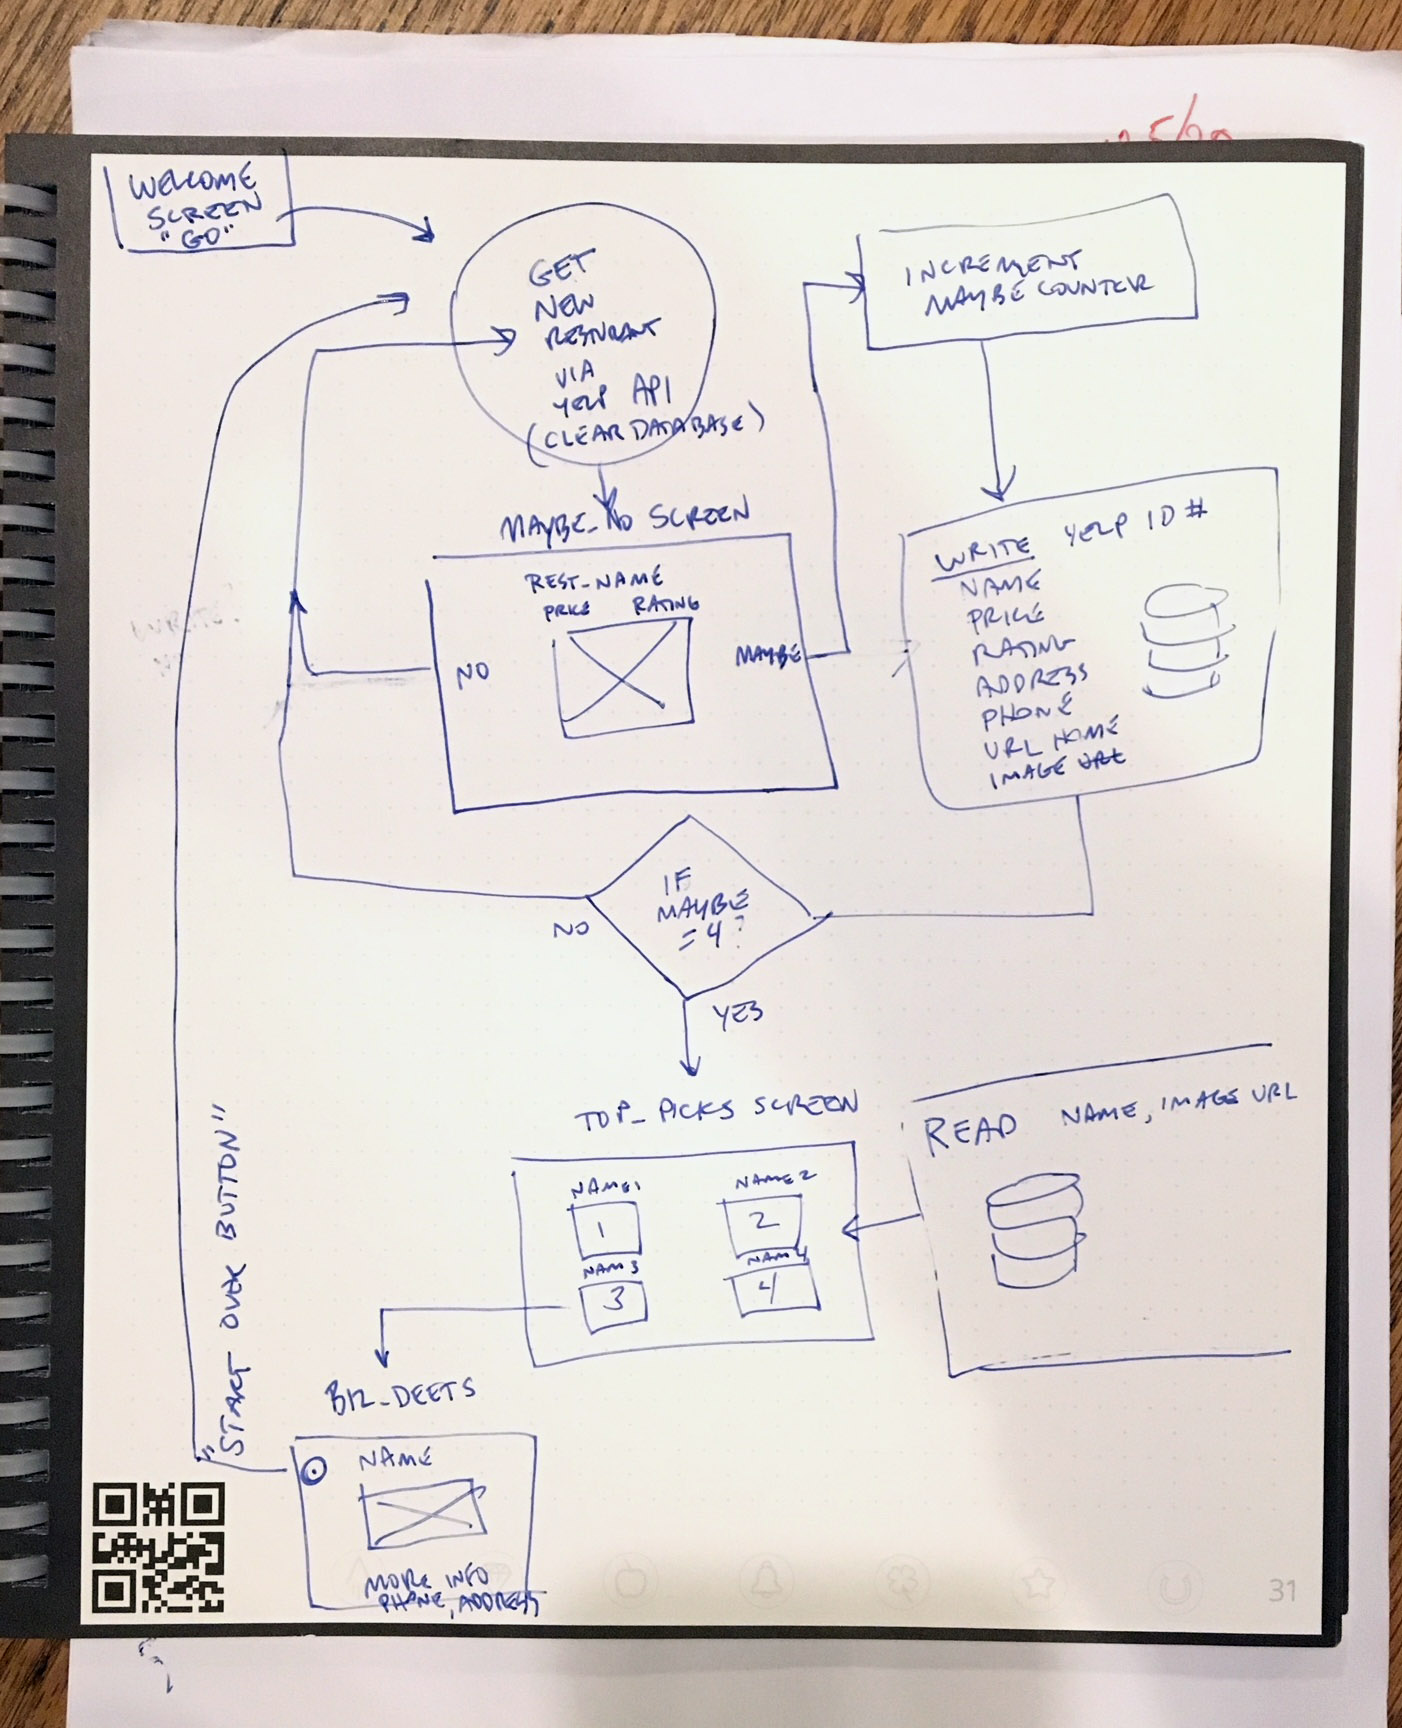 WELCOME
SCREEN
"GO"
GET
NEW
RESTURANT
VIA
YELP API
(CLEAR DATABASE)
INCREMENT
MAYBE COUNTER
MAYBE_NO SCREEN
REST_NAME
PRICE RATING
NO
MAYBE
WRITE YELP ID #
NAME
PRICE
RATING
ADDRESS
PHONE
URL HOME
IMAGE URL
IF
MAYBE
= 4?
NO
YES
TOP_PICKS SCREEN
NAME 1 NAME 2
1 2
NAM 3 NAM 4
3 4
READ NAME, IMAGE URL
"START OVER BUTTON"
BIZ_DEETS
NAME
MORE INFO
PHONE, ADDRESS
31